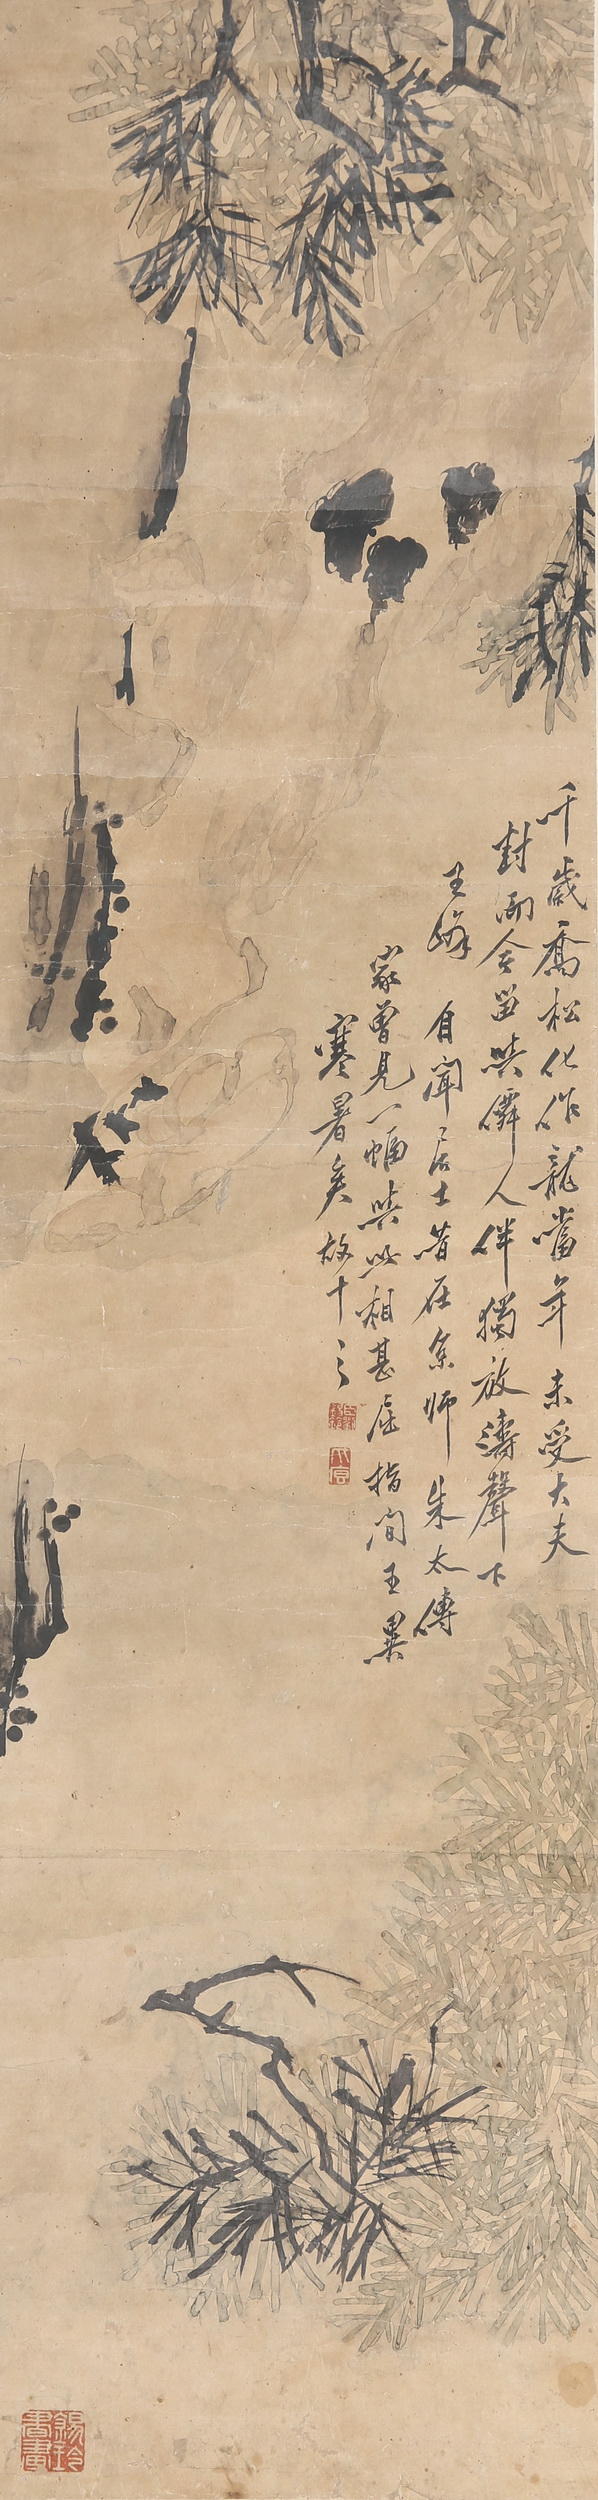 千歲喬松化作龍當年未受大夫
封而今留與儕人伴獨放濤聲下
玉峰 自聞居士昔在余師朱太傅
家曾見一幅與此相甚屈指間五異
寒暑矣故十之
錫玲書畫